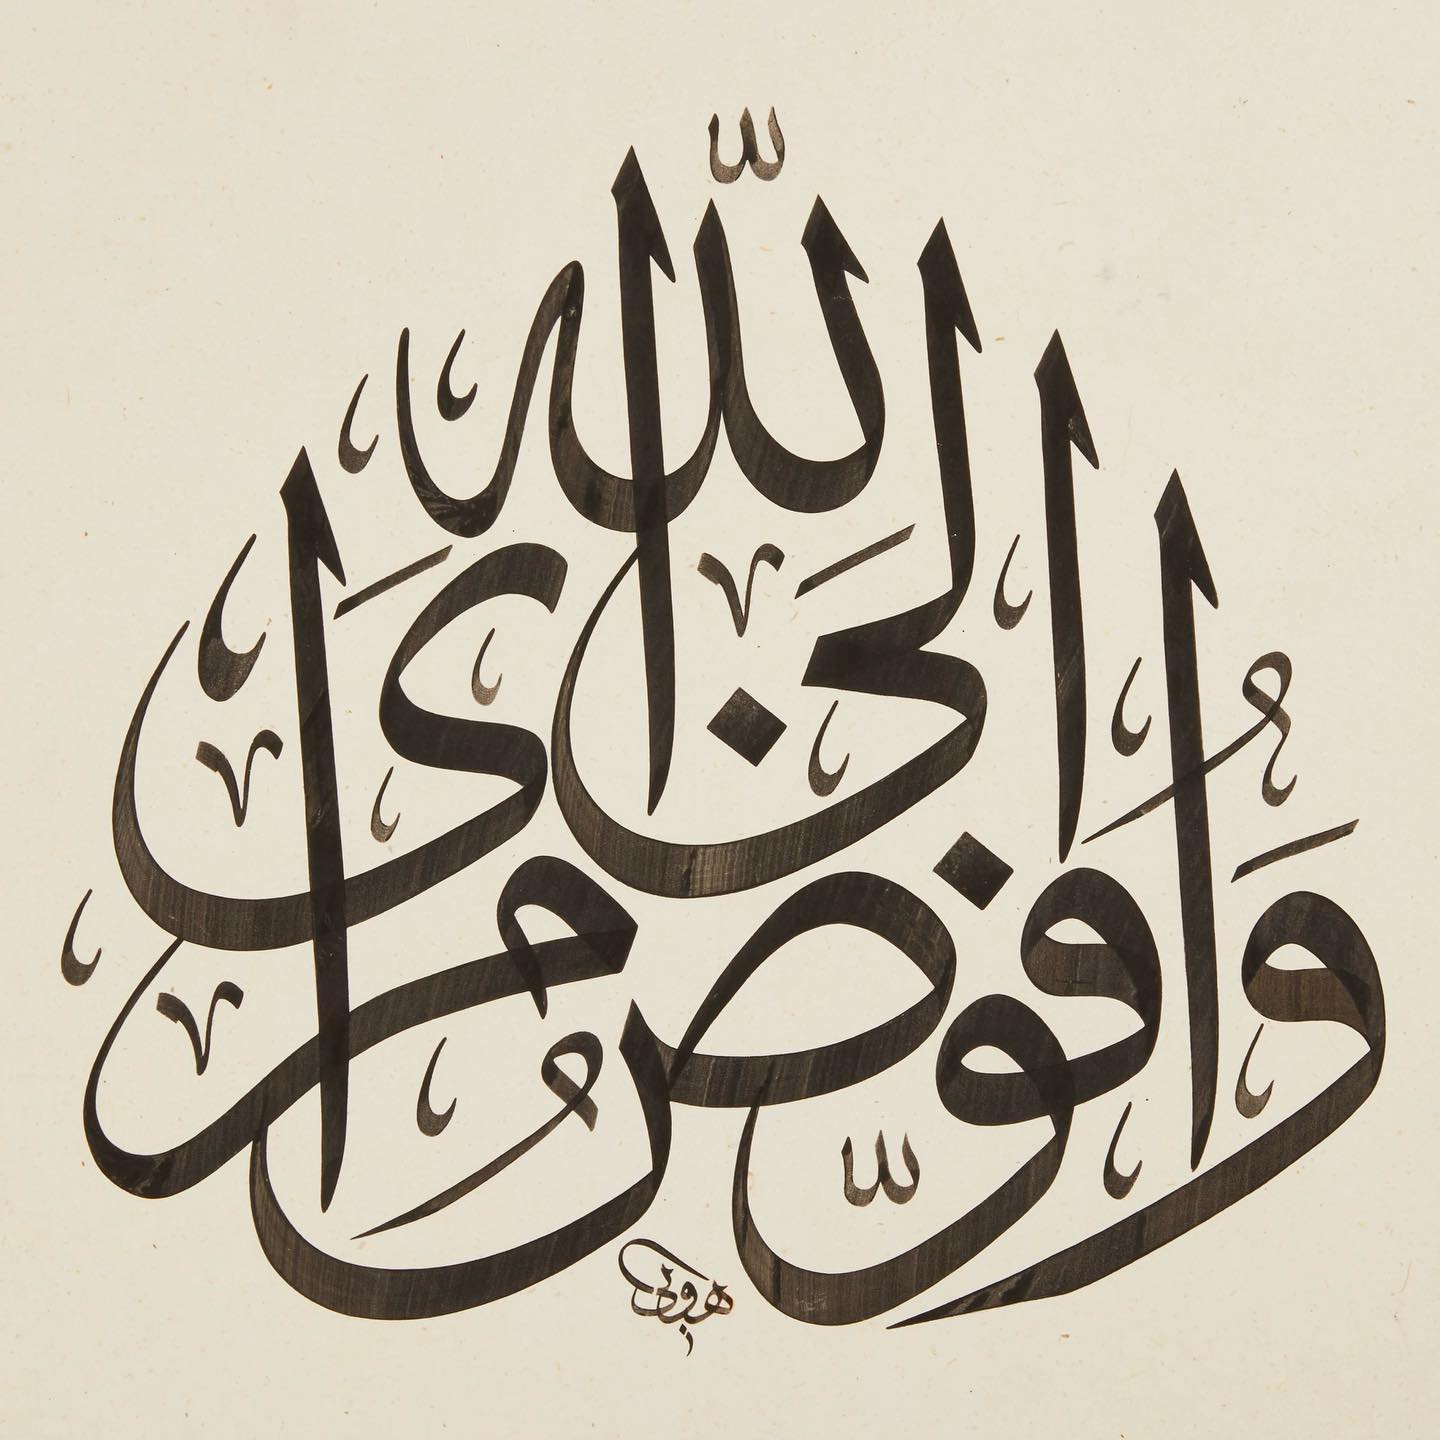 وَأُفَوِّضُ أَمْرِي إِلَى اللّٰه